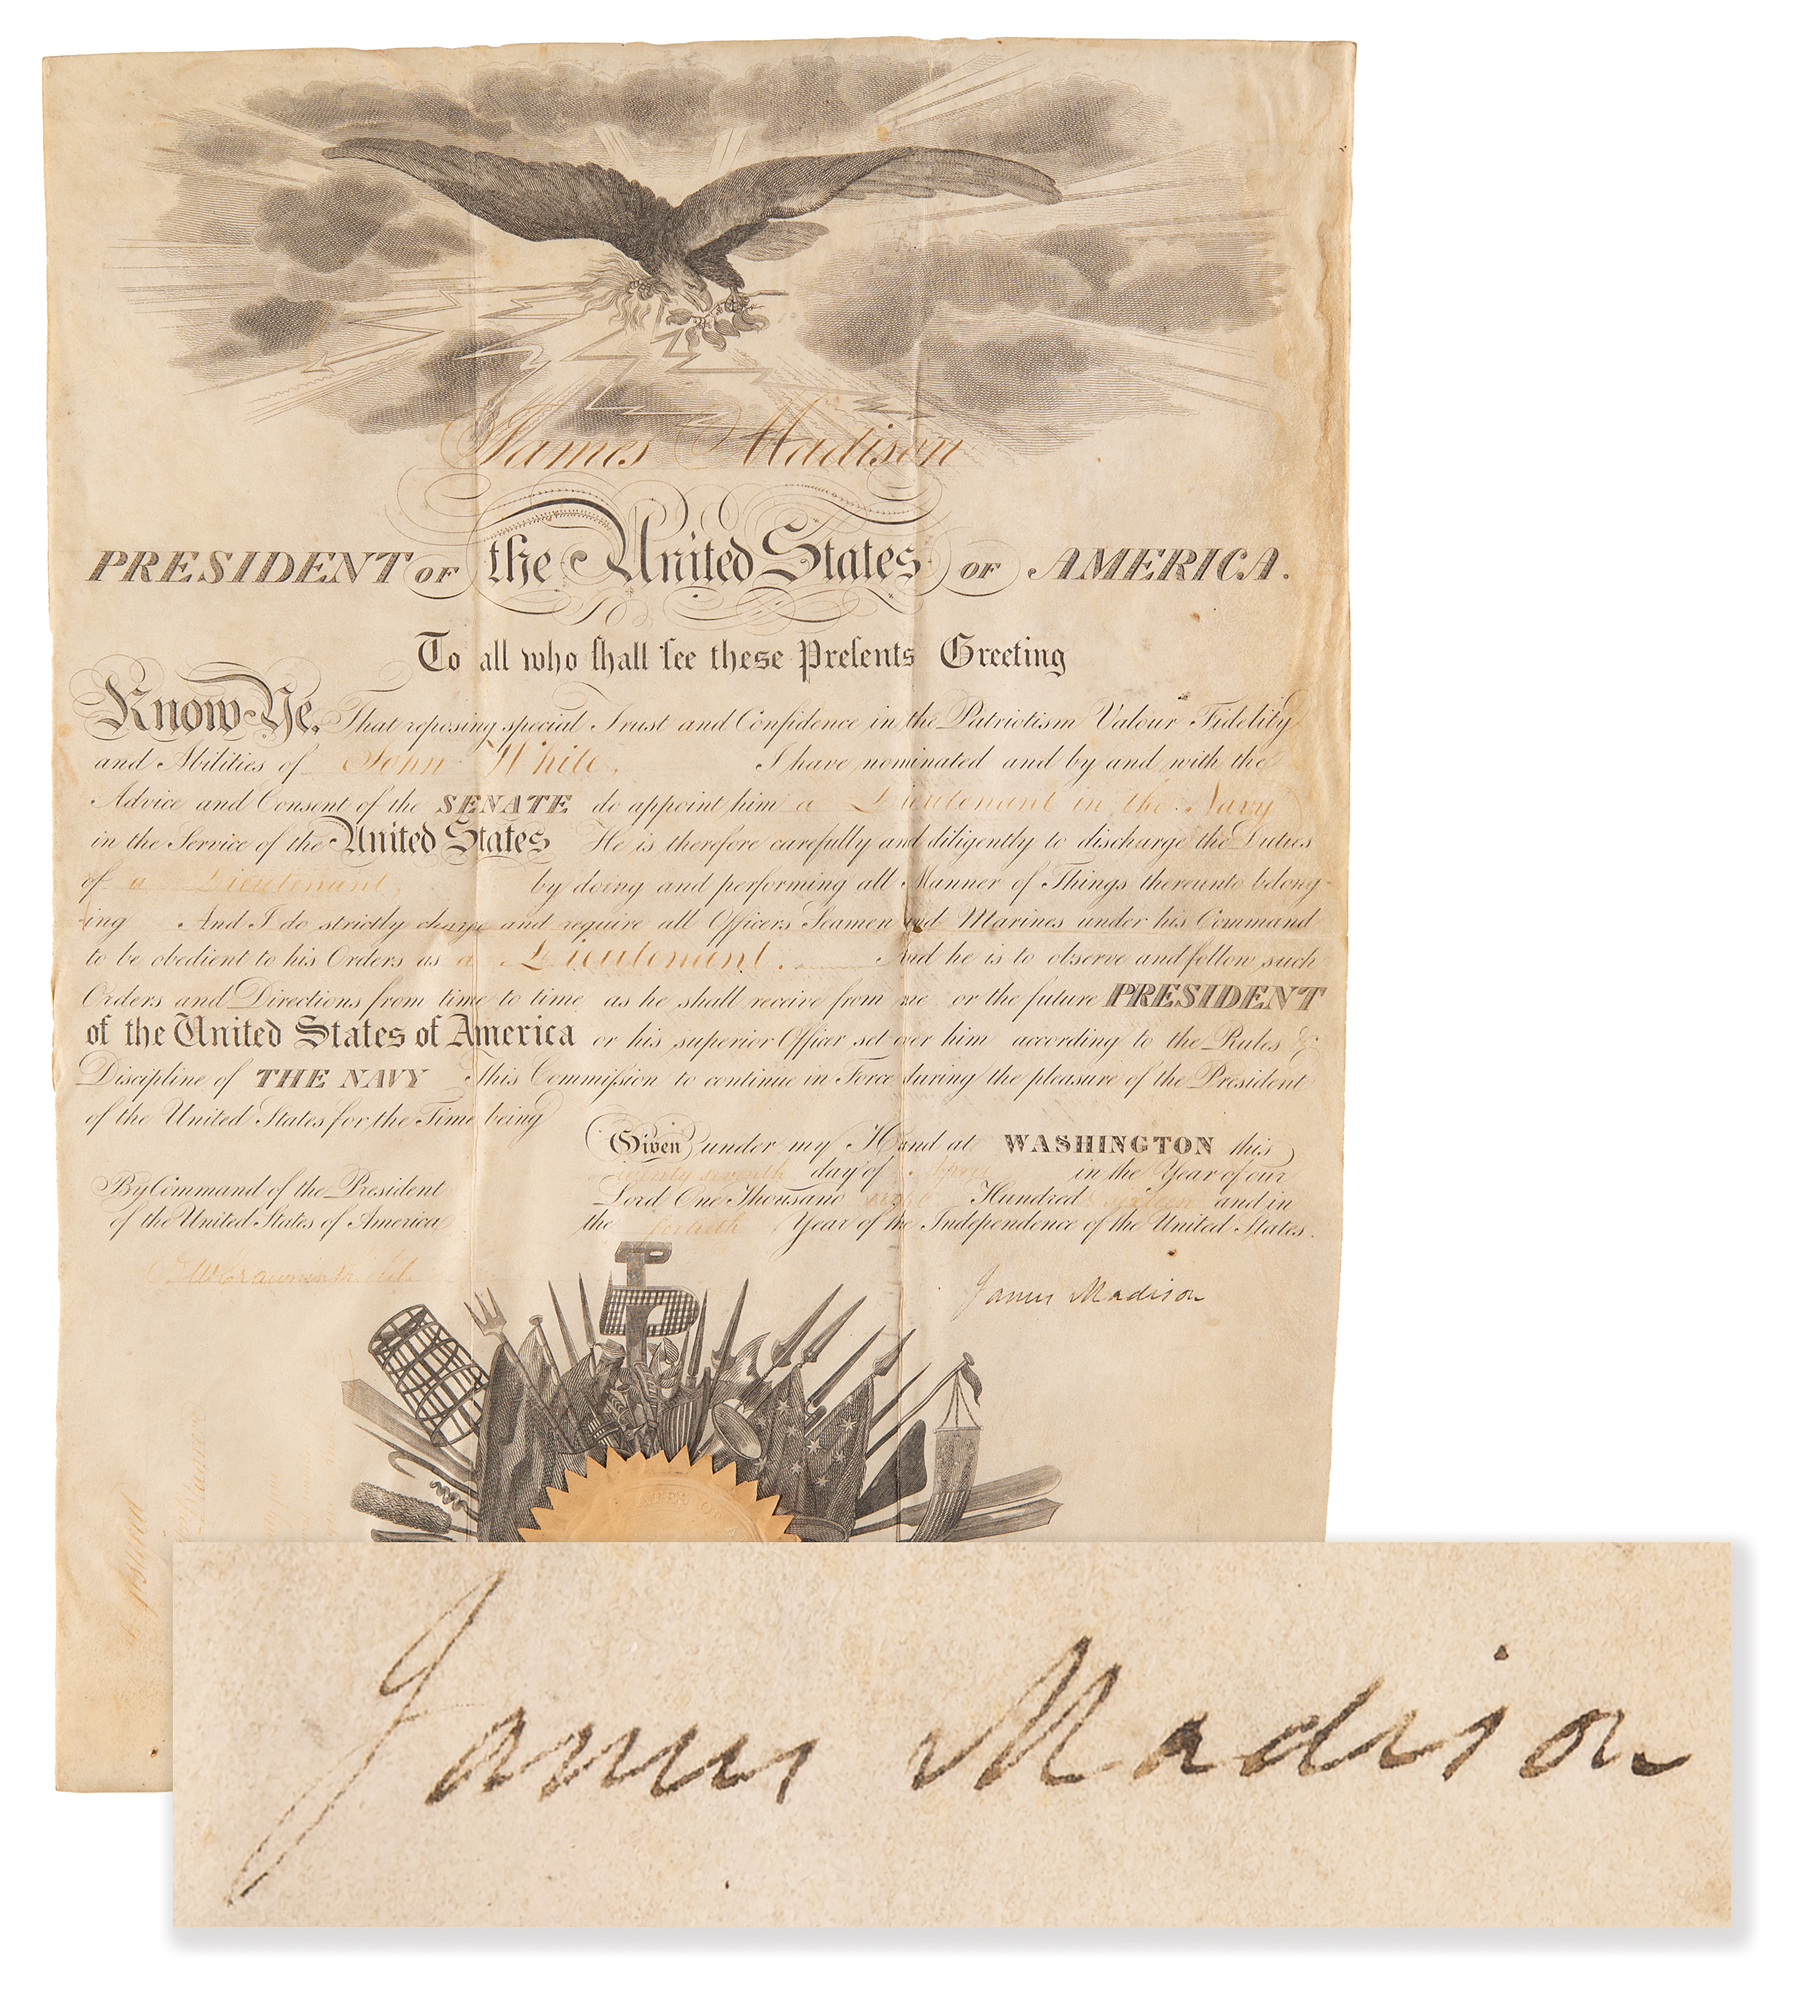 James Madison
PRESIDENT OF the United States OF AMERICA.
To all who ſhall ſee these Preſents Greeting
Know Ye, That reposing special Trust and Confidence in the Patriotism Valour Fidelity
and Abilities of John White, I have nominated and by and with the
Advice and Consent of the SENATE do appoint him a Lieutenant in the Navy
in the Service of the United States He is therefore carefully and diligently to discharge the Duties
of a Lieutenant, by doing and performing all Manner of Things thereunto belong-
ing And I do strictly charge and require all Officers Seamen and Marines under his Command
to be obedient to his Orders as a Lieutenant. And he is to observe and follow such
Orders and Directions from time to time as he shall receive from me or the future PRESIDENT
of the United States of America or his superior Officer set over him according to the Rules &
Discipline of THE NAVY This Commiſsion to continue in Force during the pleasure of the President
of the United States for the Time being
Given under my Hand at WASHINGTON this
twenty seventh day of April in the Year of our
Lord One Thousand eight Hundred & sixteen and in
the fortieth Year of the Independence of the United States.
By Command of the President
of the United States of America
James Madison
James Madison